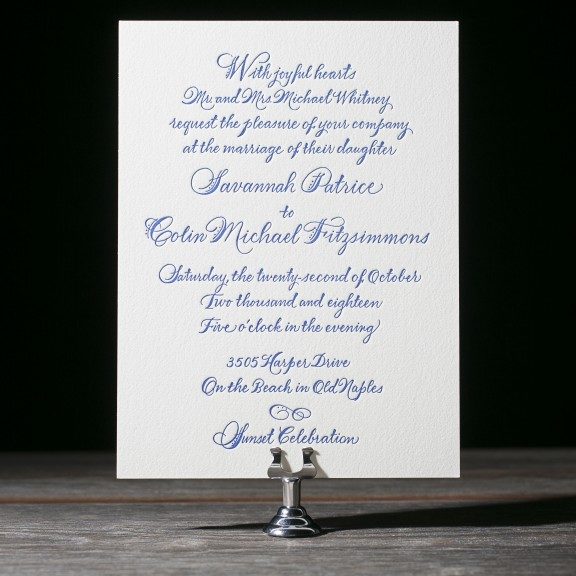 With joyful hearts
Mr. and Mrs. Michael Whitney
request the pleasure of your company
at the marriage of their daughter
Savannah Patrice
to
Colin Michael Fitzsimmons
Saturday, the twenty-second of October
Two thousand and eighteen
Five o'clock in the evening
3505 Harper Drive
On the Beach in Old Naples
Sunset Celebration